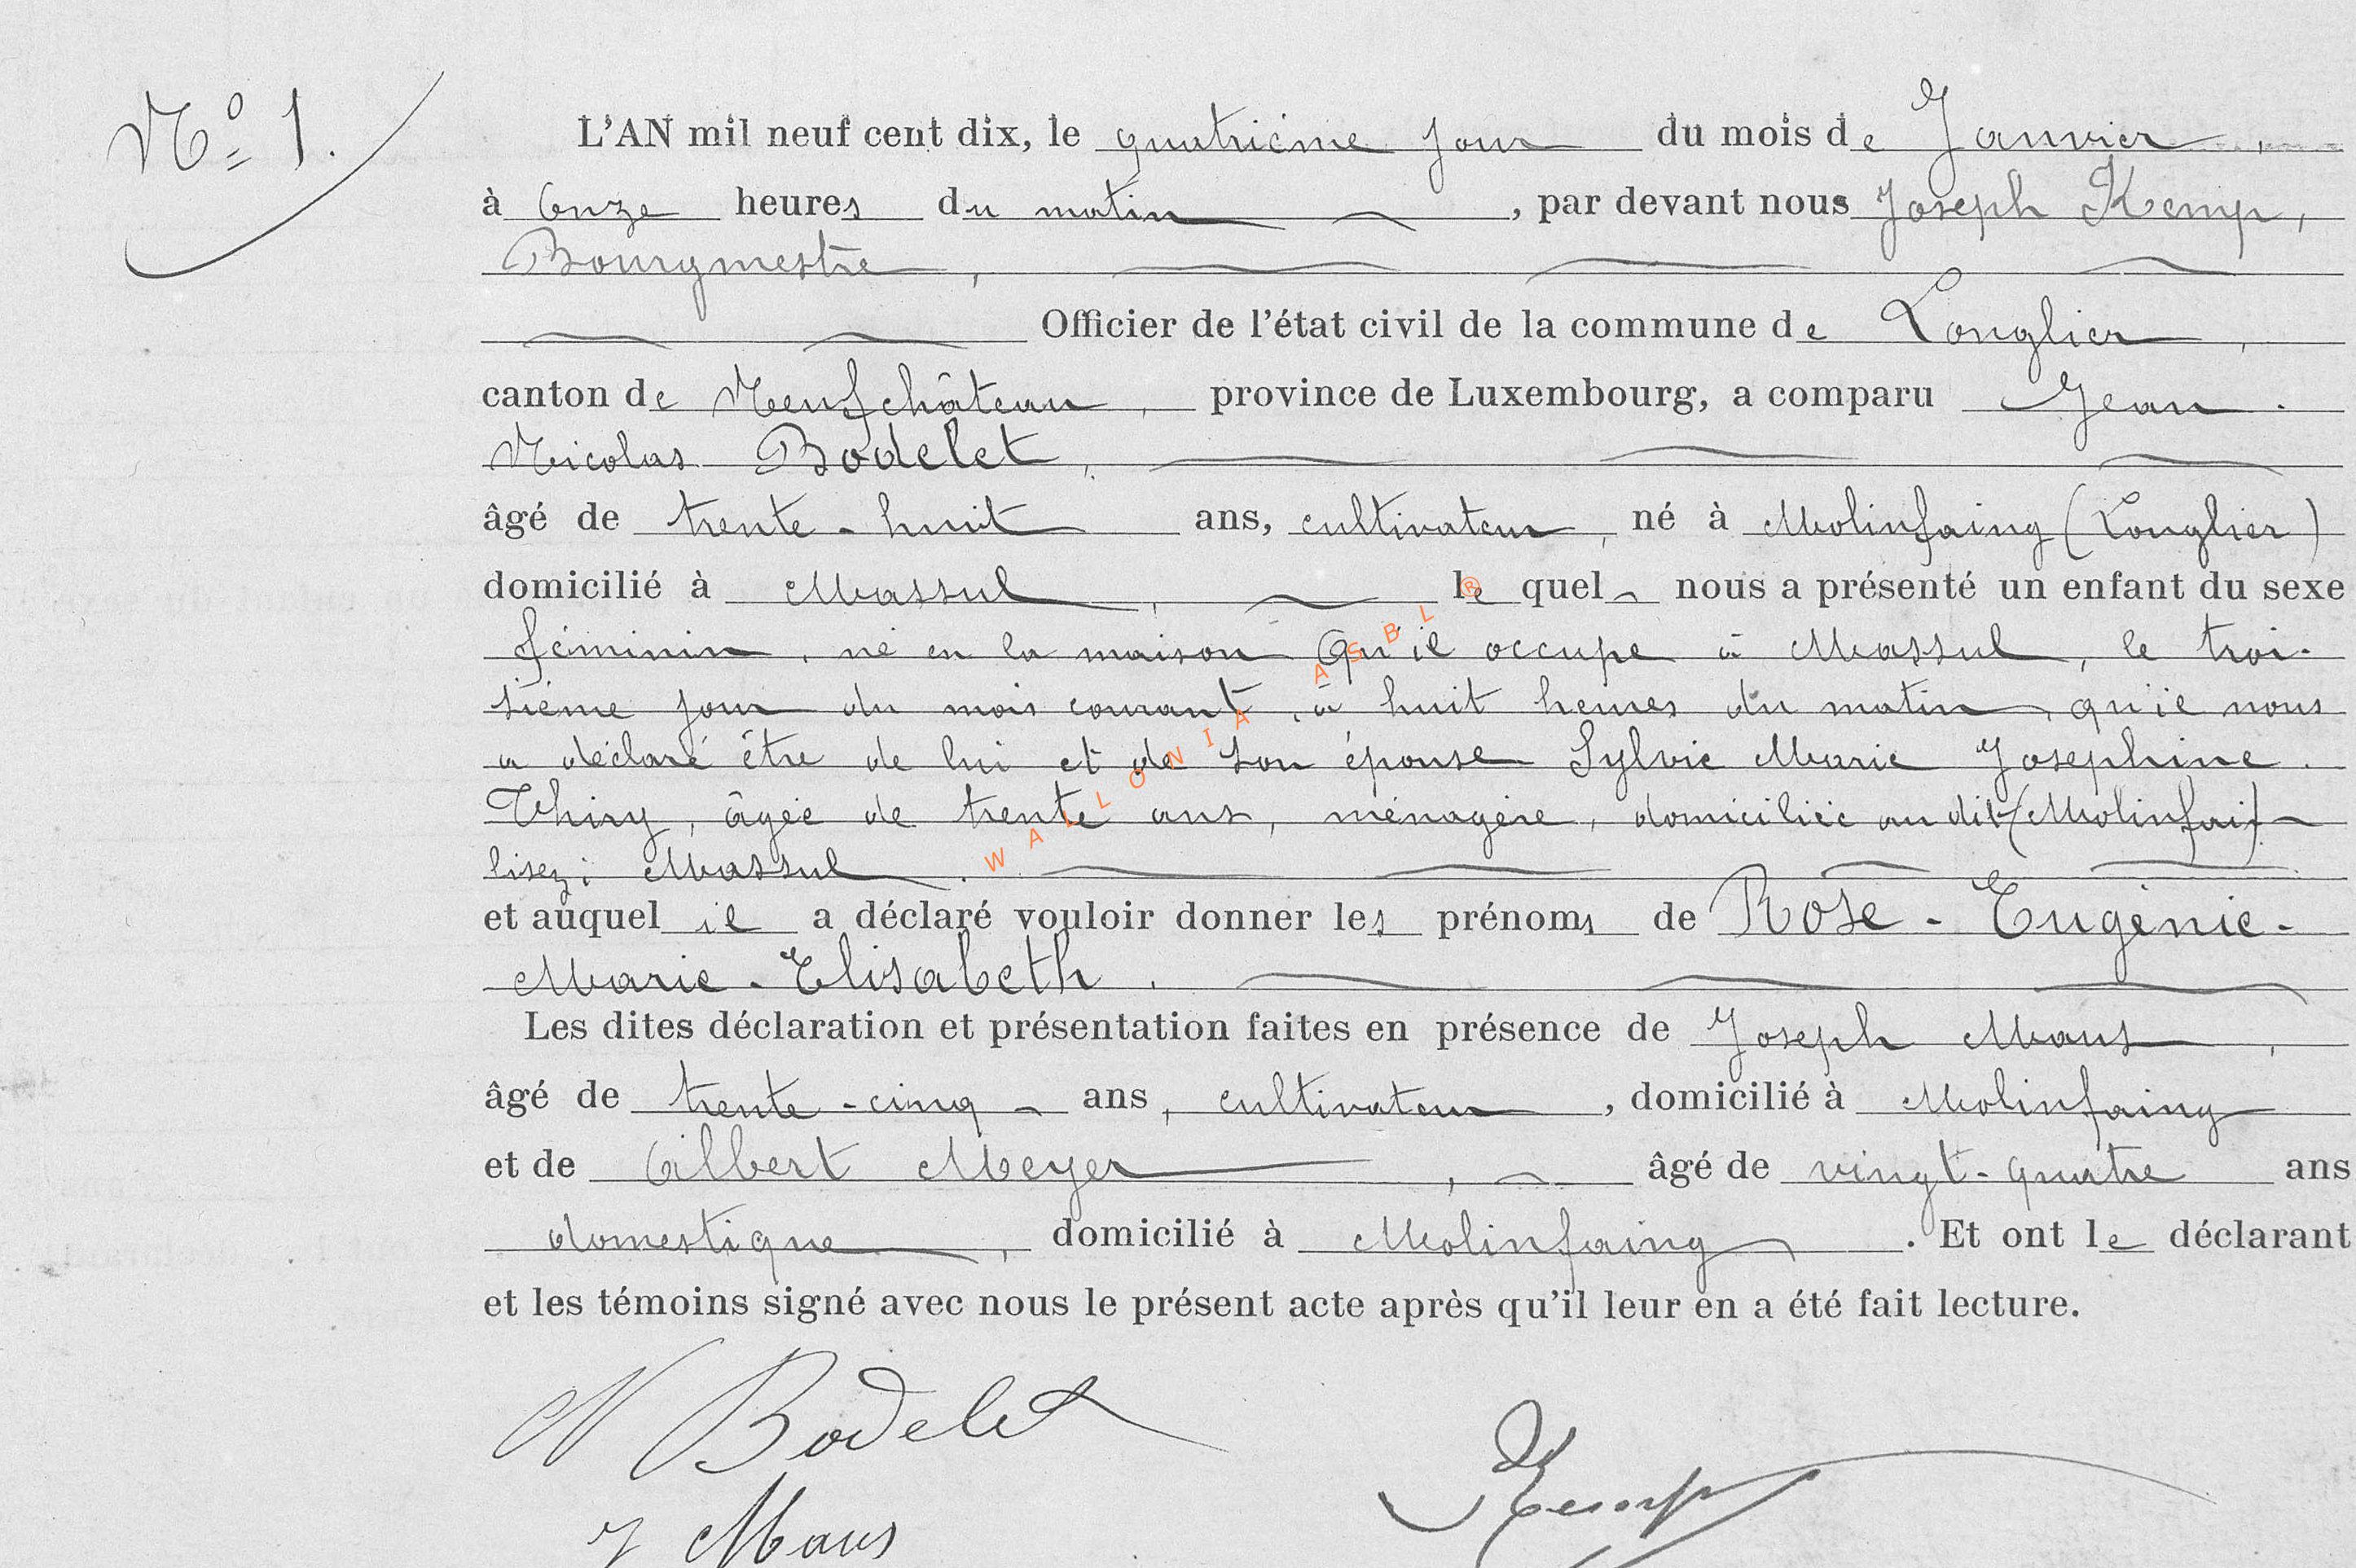 No 1.
L'AN mil neuf cent dix, le quatrième jour du mois de Janvier,
à Onze heures du matin, par devant nous Joseph Kemp,
Bourgmestre,
Officier de l'état civil de la commune de Longlier,
canton de Neufchâteau, province de Luxembourg, a comparu Jean-
Nicolas Bodelet,
âgé de trente-huit ans, cultivateur, né à Molinfaing (Longlier)
domicilié à Massul, le quel nous a présenté un enfant du sexe
féminin, né en la maison qu'il occupe à Massul, le troi-
sième jour du mois courant, à huit heures du matin, qu'il nous
a déclaré être de lui et de son épouse Sylvie Marie Josephine
Thiry, âgée de trente ans, ménagère, domiciliée au dit (Molinfai)
lisez: Massul.
et auquel il a déclaré vouloir donner les prénoms de Rose-Eugénie-
Marie-Elisabeth.
Les dites déclaration et présentation faites en présence de Joseph Maus,
âgé de trente-cinq ans, cultivateur, domicilié à Molinfaing
et de Albert Meyer, âgé de vingt-quatre ans
domestique, domicilié à Molinfaing. Et ont le déclarant
et les témoins signé avec nous le présent acte après qu'il leur en a été fait lecture.
N Bodelet
Kemp
J Maus
WALLONIA ASBL ®